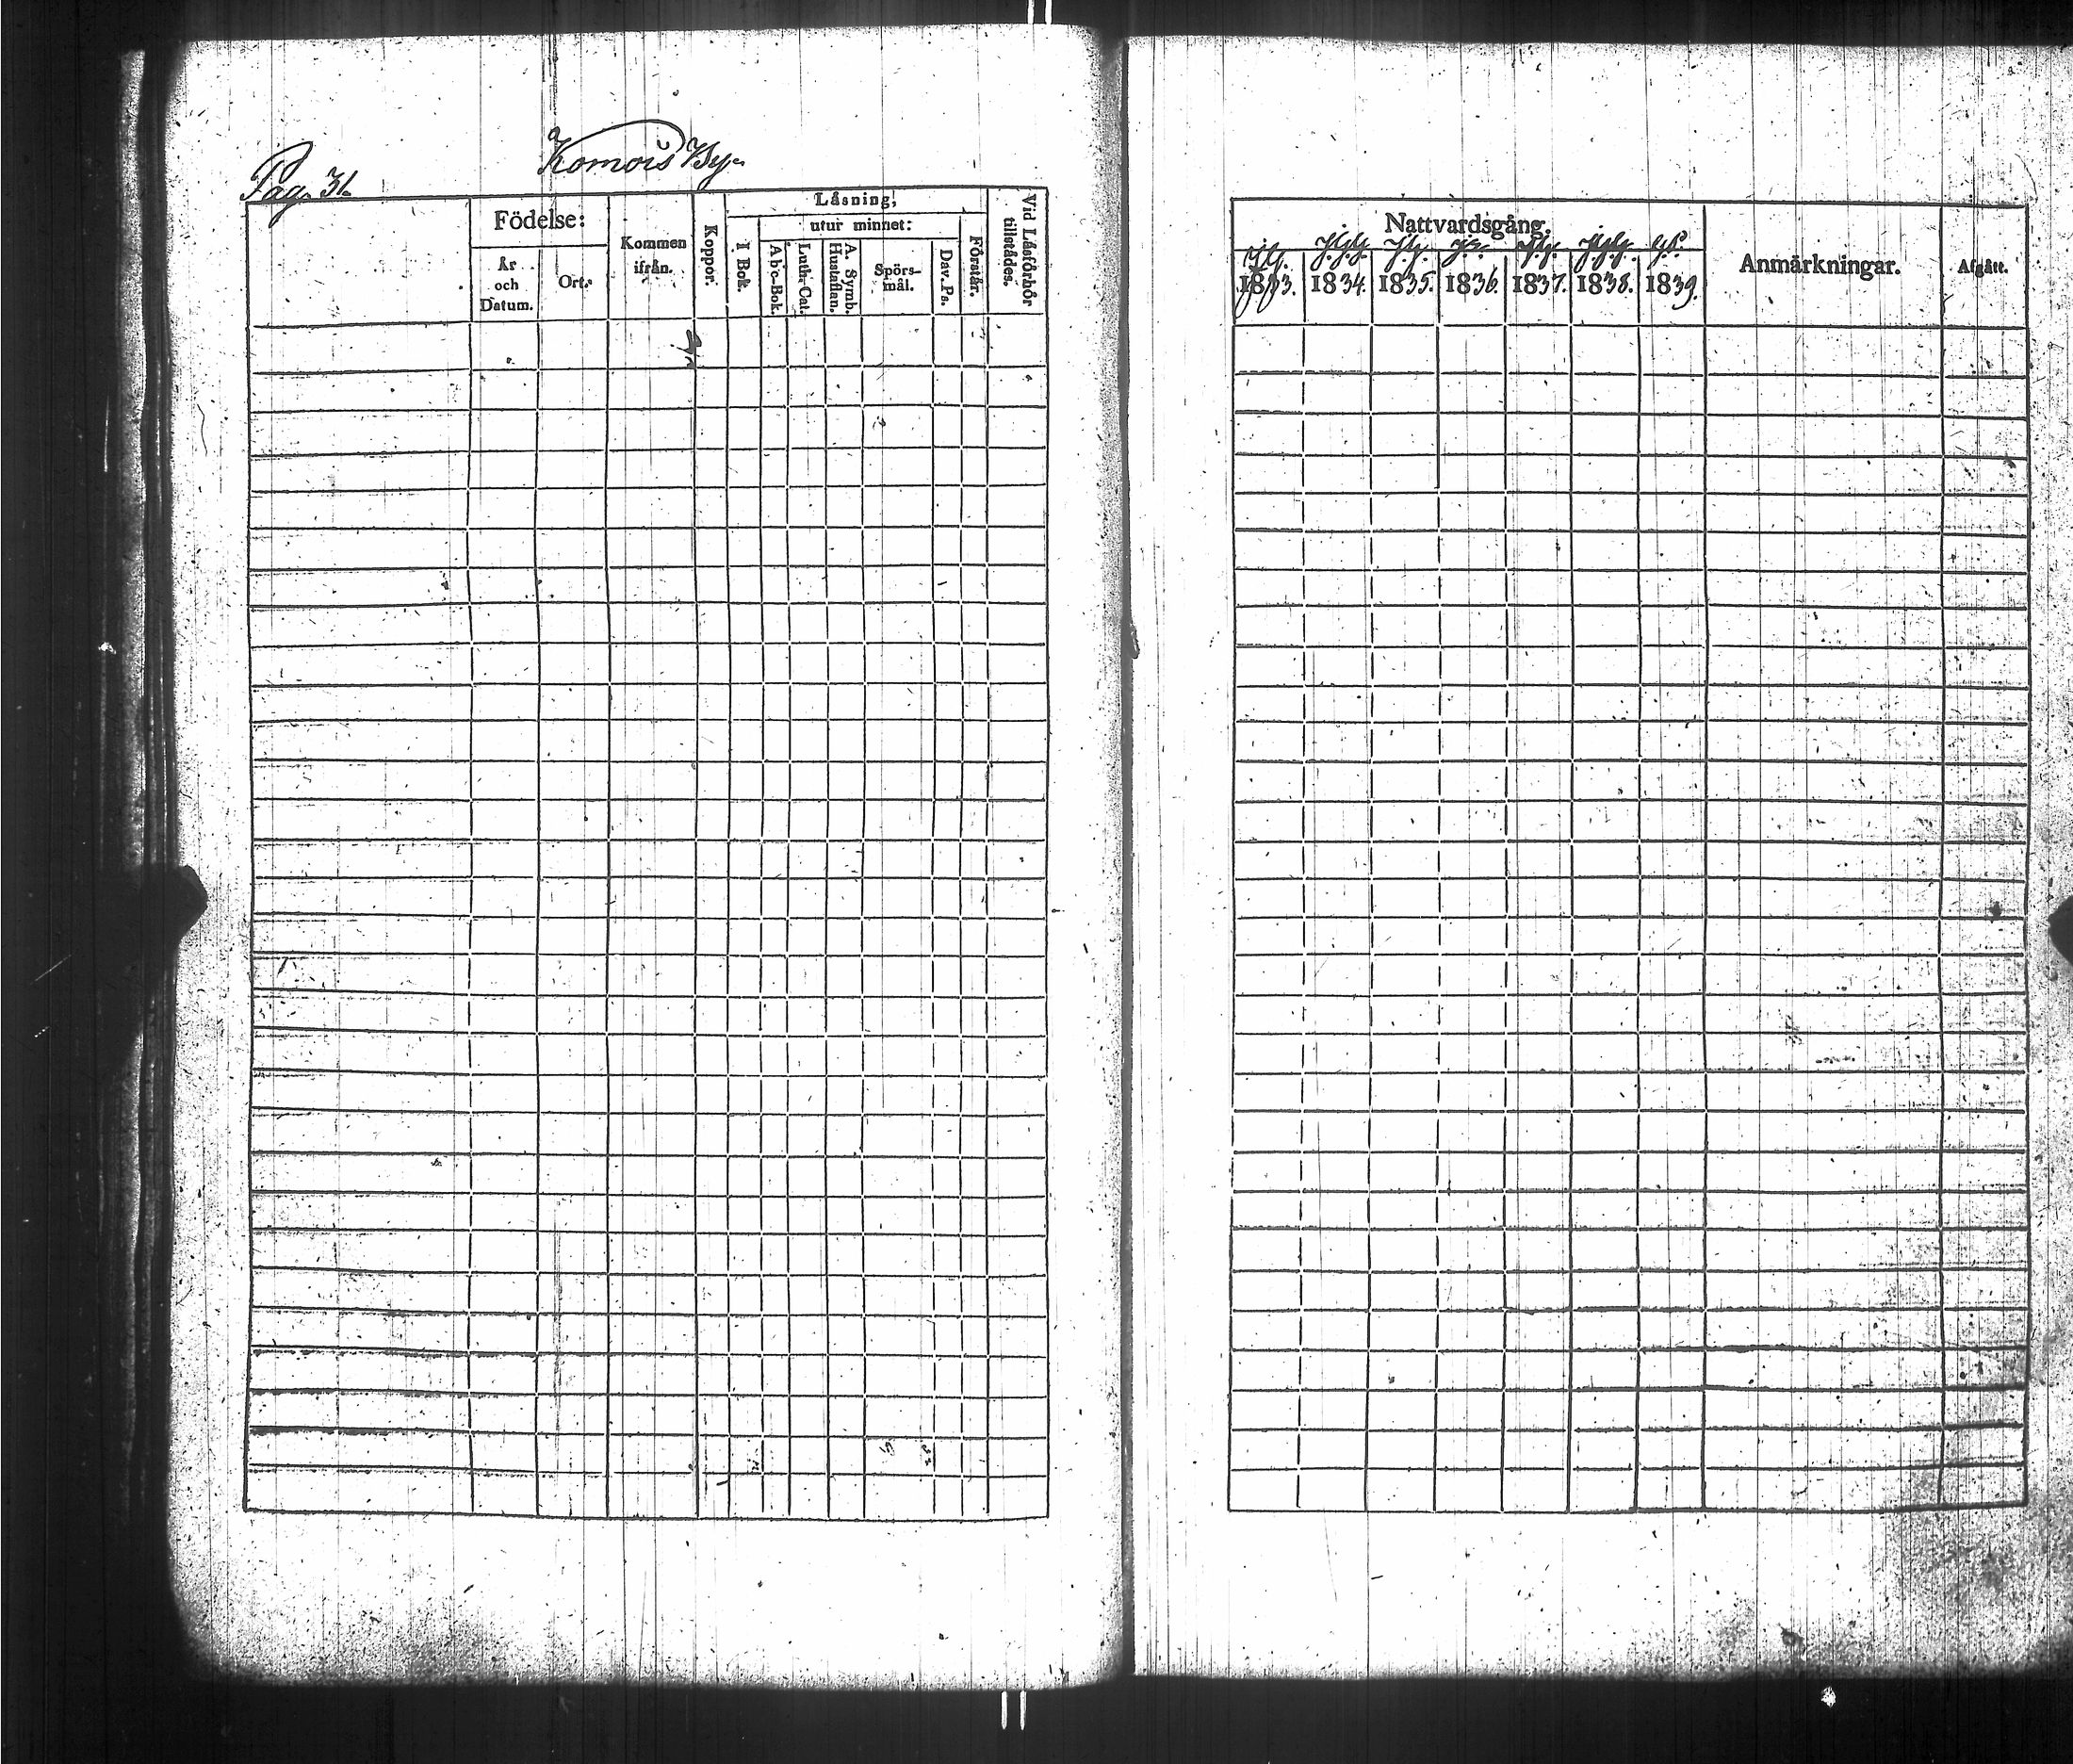 Pag. 31.
Komois By.
Födelse:
År och Datum.
Ort.
Kommen ifrån.
Koppor.
Låsning,
I Bok.
utur minnet:
Abc-Bok.
Luth. Cat.
A. Symb. Hustaflan.
Spörs-
mål.
Dav. Ps.
Förstår.
Vid Låsförhör tillstädes.
Nattvardsgång.
1833. 1834. 1835. 1836. 1837. 1838. 1839.
Anmärkningar.
Afgått.